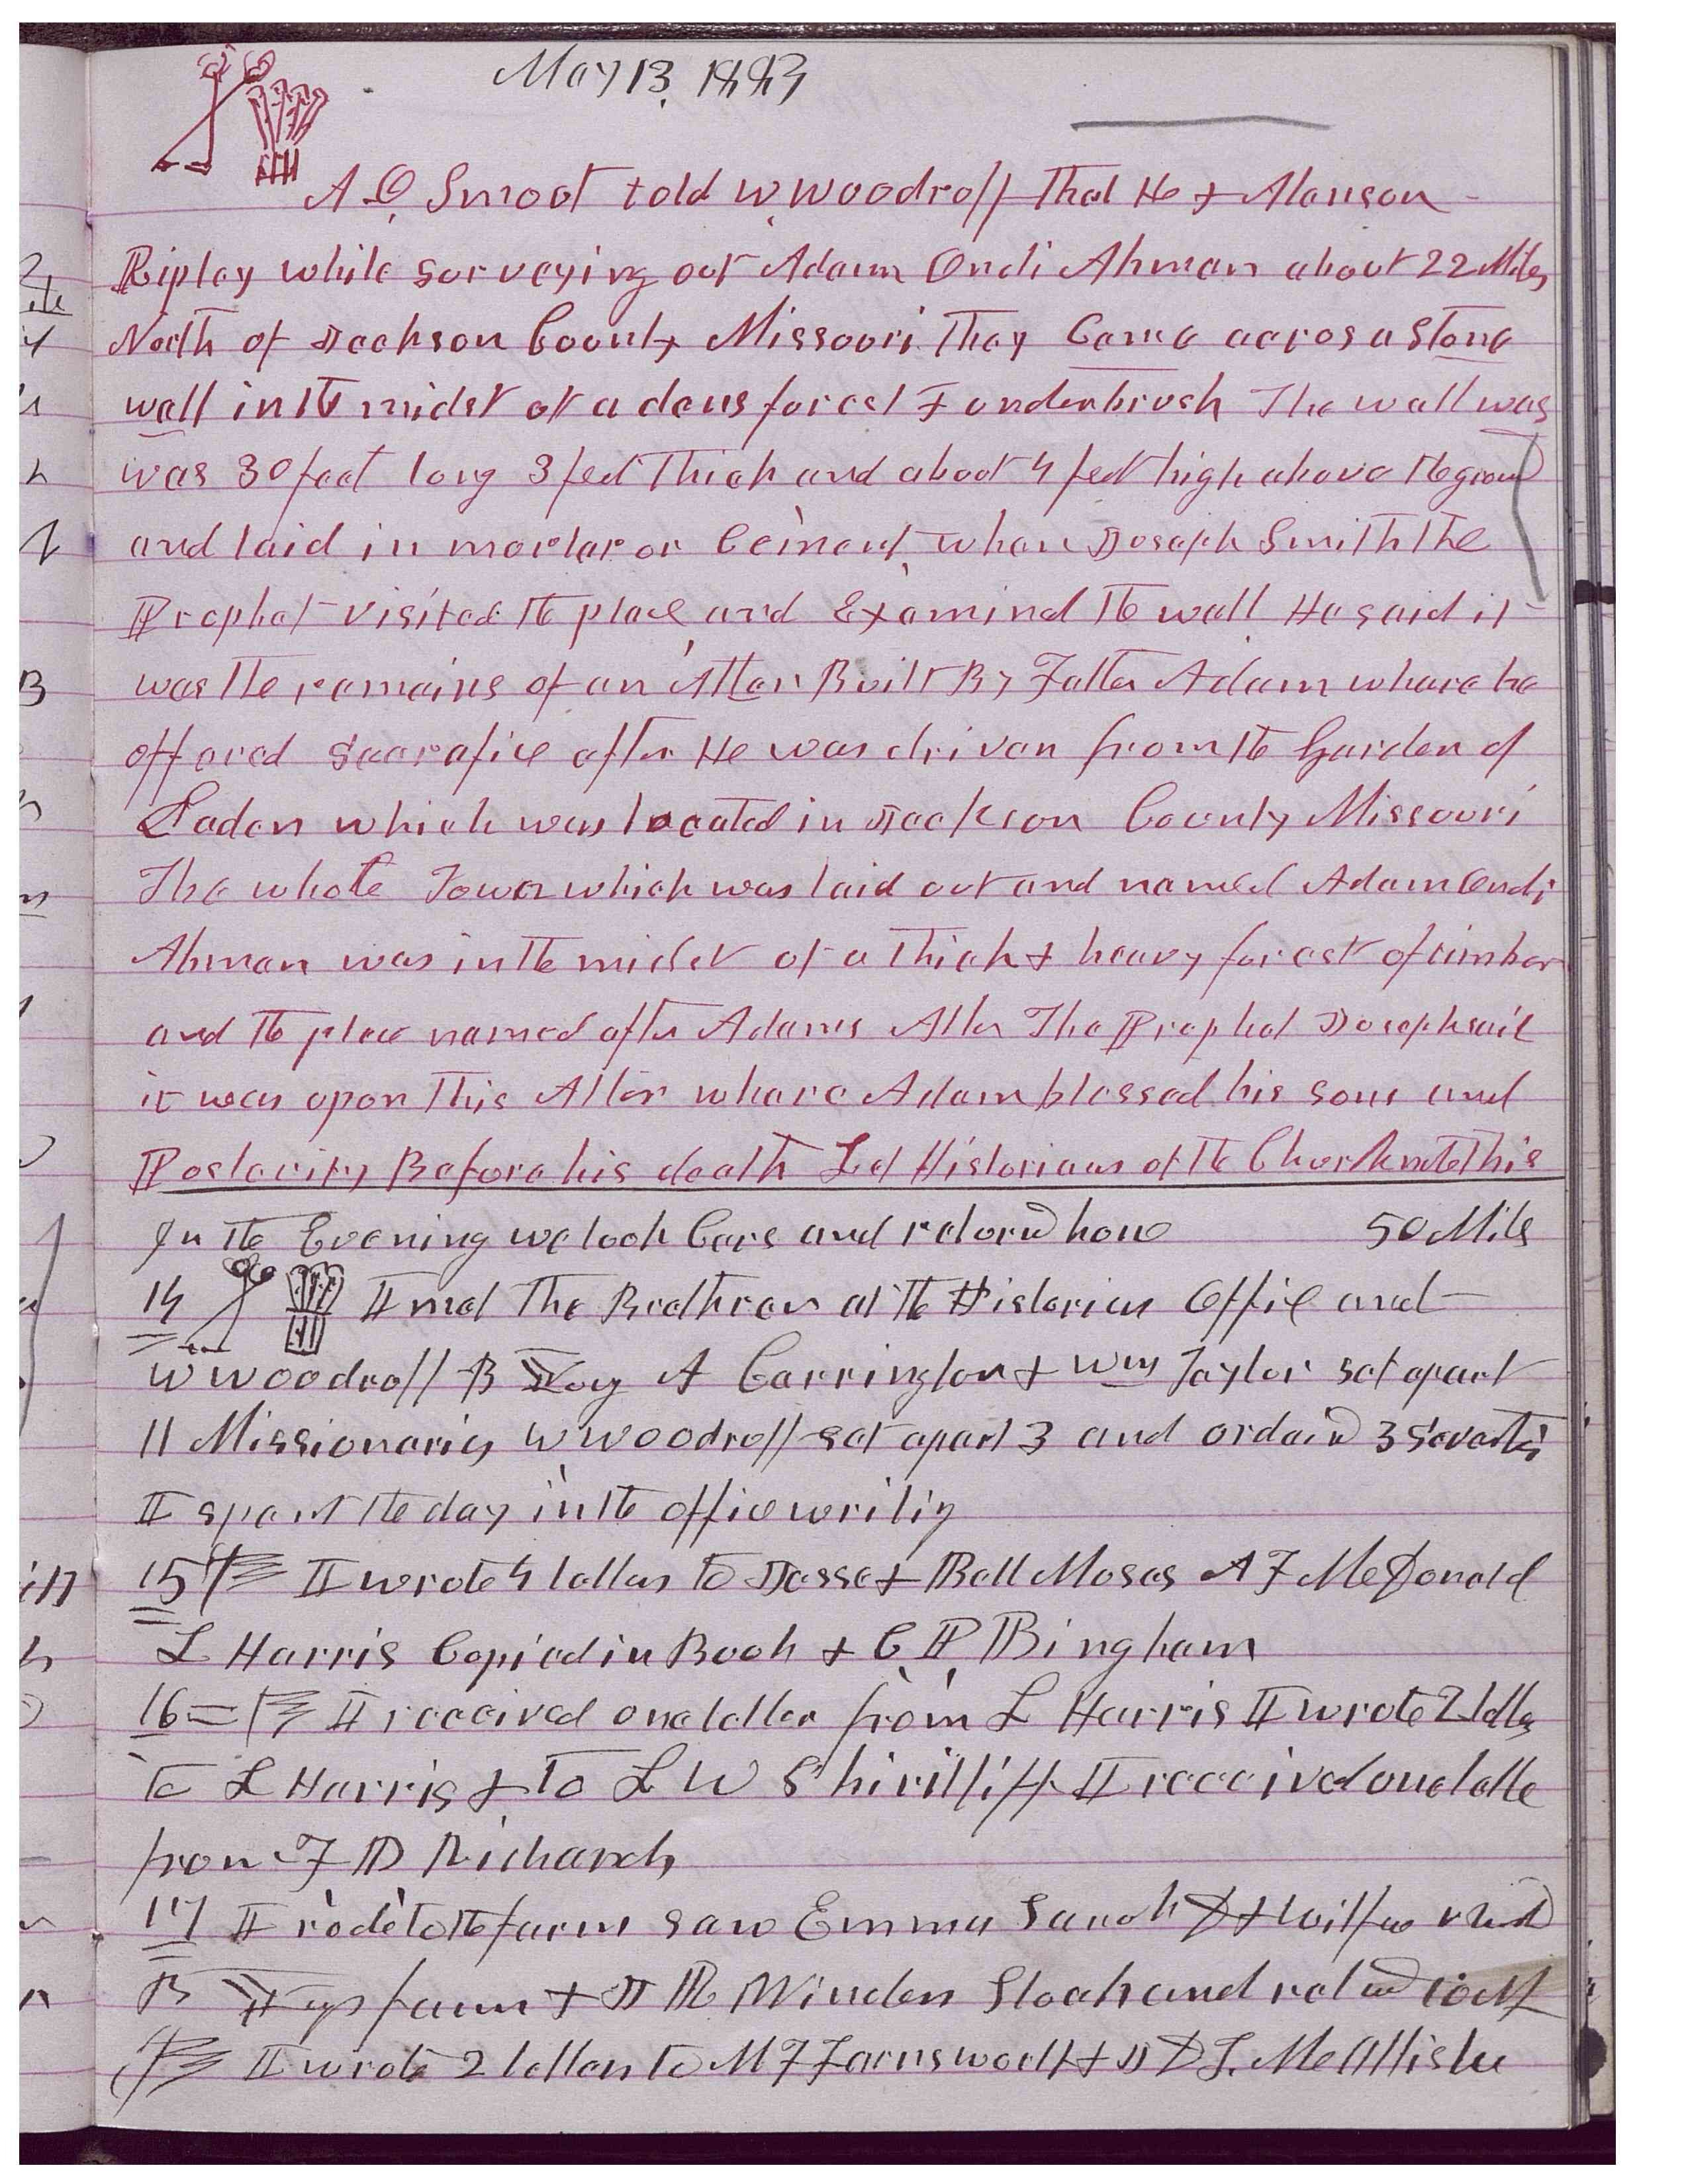 May 13, 1883
A O Smoot told W Woodruff That He & Alanson
Ripley while surveying out Adam Ondi Ahman about 22 Miles
North of Jackson County Missouri They Came across a Stone
wall in the midst of a dens forest & underbrush The wall was
was 30 feet long 3 feet Thick and about 4 feet high above the ground
and laid in mortar or Cement when Joseph Smith the
Prophet visited the place and Examind the wall He said it
was the remains of an Altar Built By Father Adam where he
offered Sacrafice after He was driven from the Garden of
Eaden which was located in Jackson County Missouri
The whole Town which was laid out and named Adam Ondi
Ahman was in the midst of a Thick & heavy forest of timber
and the place named after Adams Alter The Prophet Joseph said
it was upon This Altar where Adam blessed his sons and
Posterity Before his death Let Historians of the Church note this
In the Evening we took Cars and returnd home 50 Miles
14 I met The Brethren at the Historians Office and
W Woodruff B Young A Carrington & Wm Taylor set apart
11 Missionaries W Woodruff set apart 3 and ordaind 3 Seventies
I spent the day in the office writing
15 I wrote 4 letters to Jesse & Bell Moses A F McDonald
L Harris Copied in Book & C P Bingham
16 I received one letter from L Harris I wrote 2 letters
to L Harris & to L W Shirtliff I received one letter
from F D Richards
17 I rode to the farm saw Emma Sarah & Wilford visited
B Youngs farm & J R Winders Stock and returnd
I wrote 2 letters to M F Farnsworth & J D T. McAllister